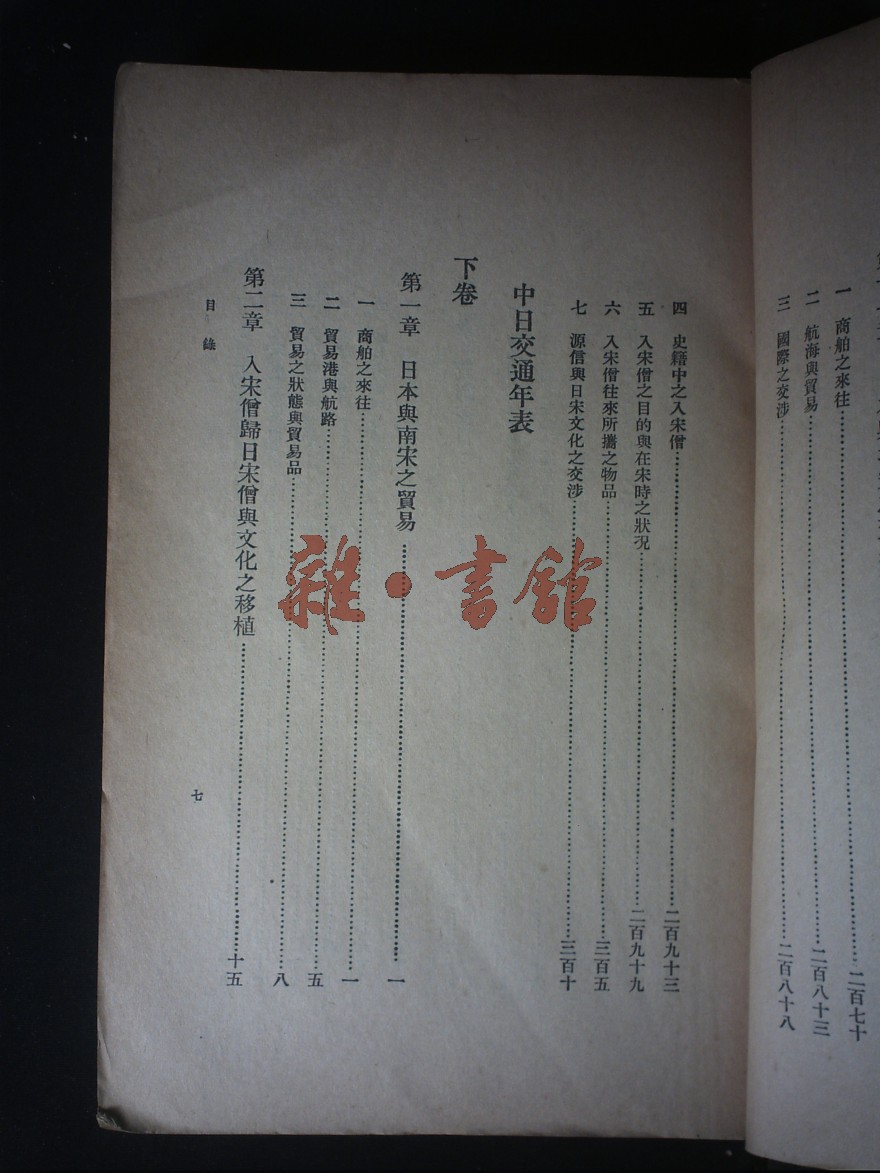 一 商舶之來往……二百七十
二 航海與貿易……二百八十三
三 國際之交涉……二百八十八
四 史籍中之入宋僧……二百九十三
五 入宋僧之目的與在宋時之狀況……二百九十九
六 入宋僧往來所攜之物品……三百五
七 源信與日宋文化之交涉……三百十
中日交通年表
下卷
第一章 日本與南宋之貿易……一
一 商舶之來往……一
二 貿易港與航路……五
三 貿易之狀態與貿易品……八
第二章 入宋僧歸日宋僧與文化之移植……十五
目錄
七
雜·書館